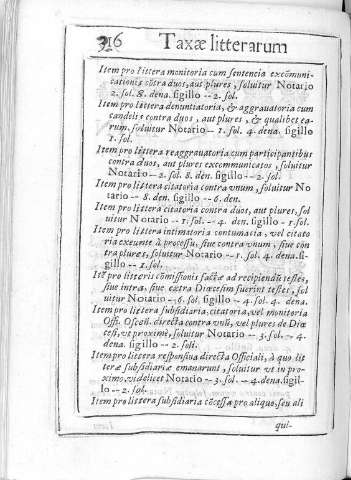 316 Taxæ litterarum
Item pro littera monitoria cum sententia excōmuni-
cationis cōtra duos, aut plures, soluitur Notario
2. sol. 8. dena. sigillo -- 2. sol.
Item pro littera denuntiatoria, & aggrauatoria cum
candelis contra duos, aut plures, & qualibet ea-
rum, soluitur Notario -- 1. sol. 4. dena. sigillo
1. sol.
Item pro littera reaggrauatoria cum participantibus
contra duos, aut plures excommunicatos, soluitur
Notario -- 2. sol. 8. den. sigillo -- 2. sol.
Item pro littera citatoria contra vnum, soluitur No
tario -- 8. den. sigillo -- 6. den.
Item pro littera citatoria contra duos, aut plures, sol
uitur Notario -- 1. sol. -- 4. den. sigillo -- 1. sol.
Item pro littera intimatoria contumatia, vel citato
ria exeunte à processu, siue contra vnum, siue con
tra plures, soluitur Notario -- 1. sol. 4. dena. si-
gillo -- 1. sol.
Itē pro litteris cōmissionis factæ ad recipiendū testes,
siue intra, siue extra Diœcesim fuerint testes, sol
uitur Notario -- 6. sol. sigillo -- 4. sol. 4. dena.
Item pro littera subsidiaria, citatoria, vel monitoria
Offi. Oscen. directa contra vnū, vel plures de Diœ
cesi, vt proximè, soluitur Notario -- 3. sol. -- 4.
dena. sigillo -- 2. sol.
Item pro littera responsiua directa Officiali, à quo lit
teræ subsidiariæ emanarunt, soluitur vt in pro-
ximo, videlicet Notario -- 3. sol. -- 4. dena. sigil-
lo -- 2. sol.
Item pro littera subsidiaria cōcessa pro aliquo, seu ali
qui-